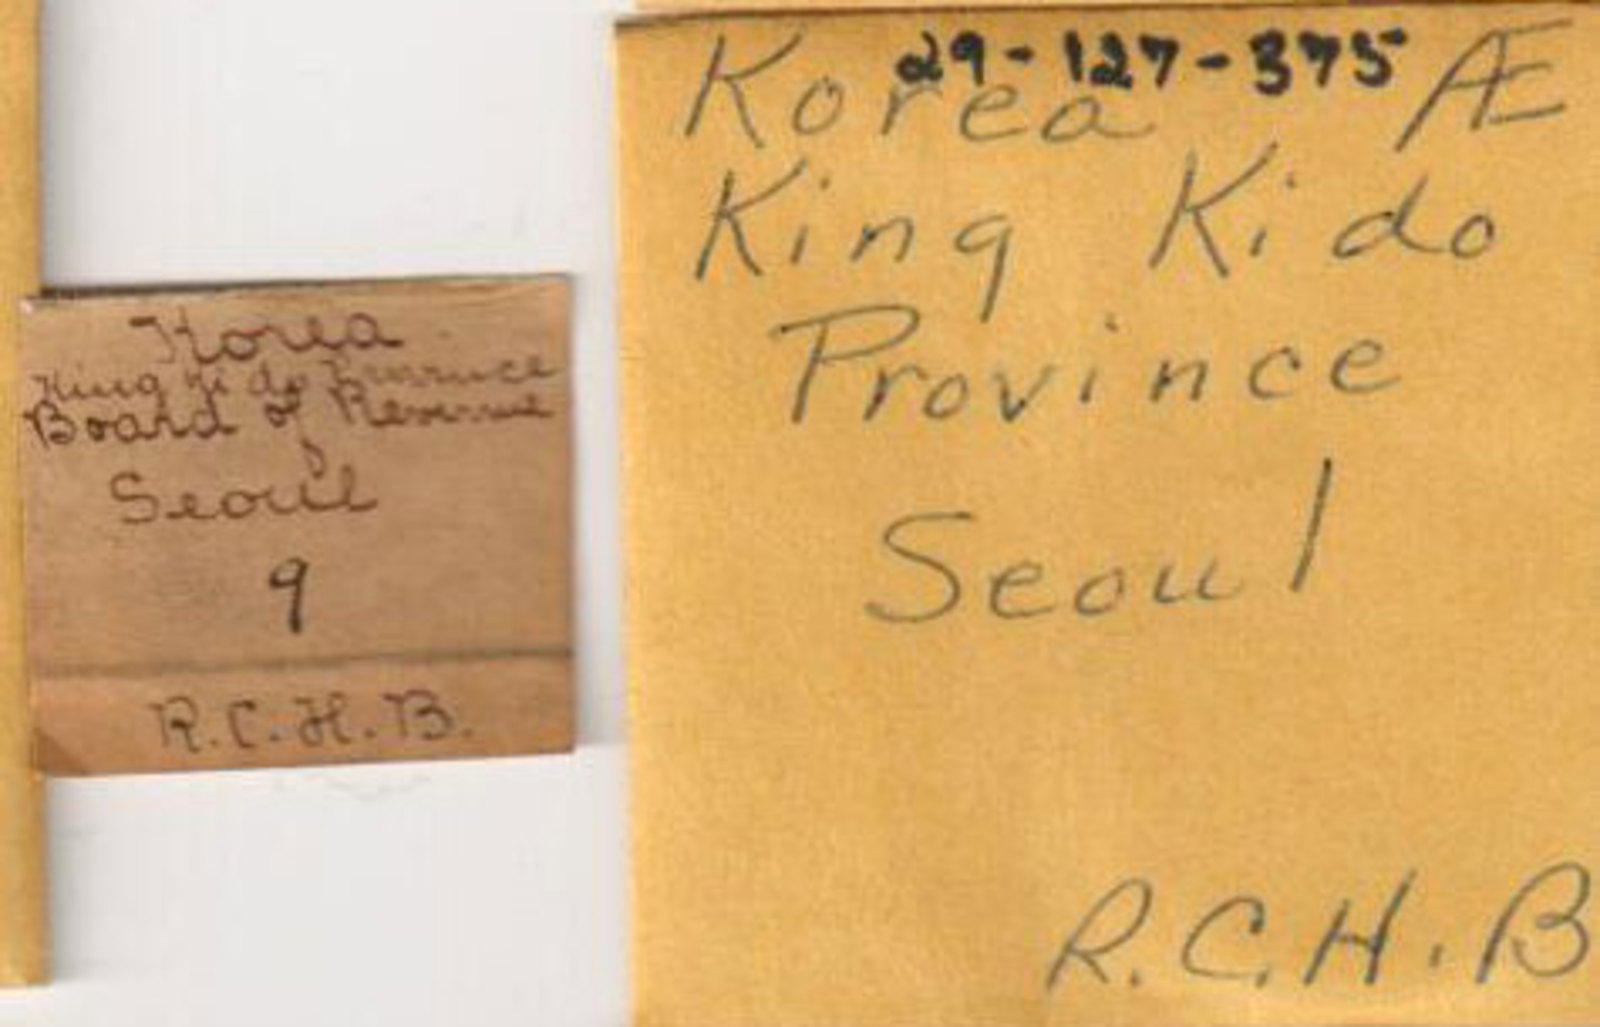 Korea
King Ki do Province
Board of Revenue
Seoul
9
R.C.H.B.
29-127-375
Korea Æ
King Ki do
Province
Seoul
R.C.H.B